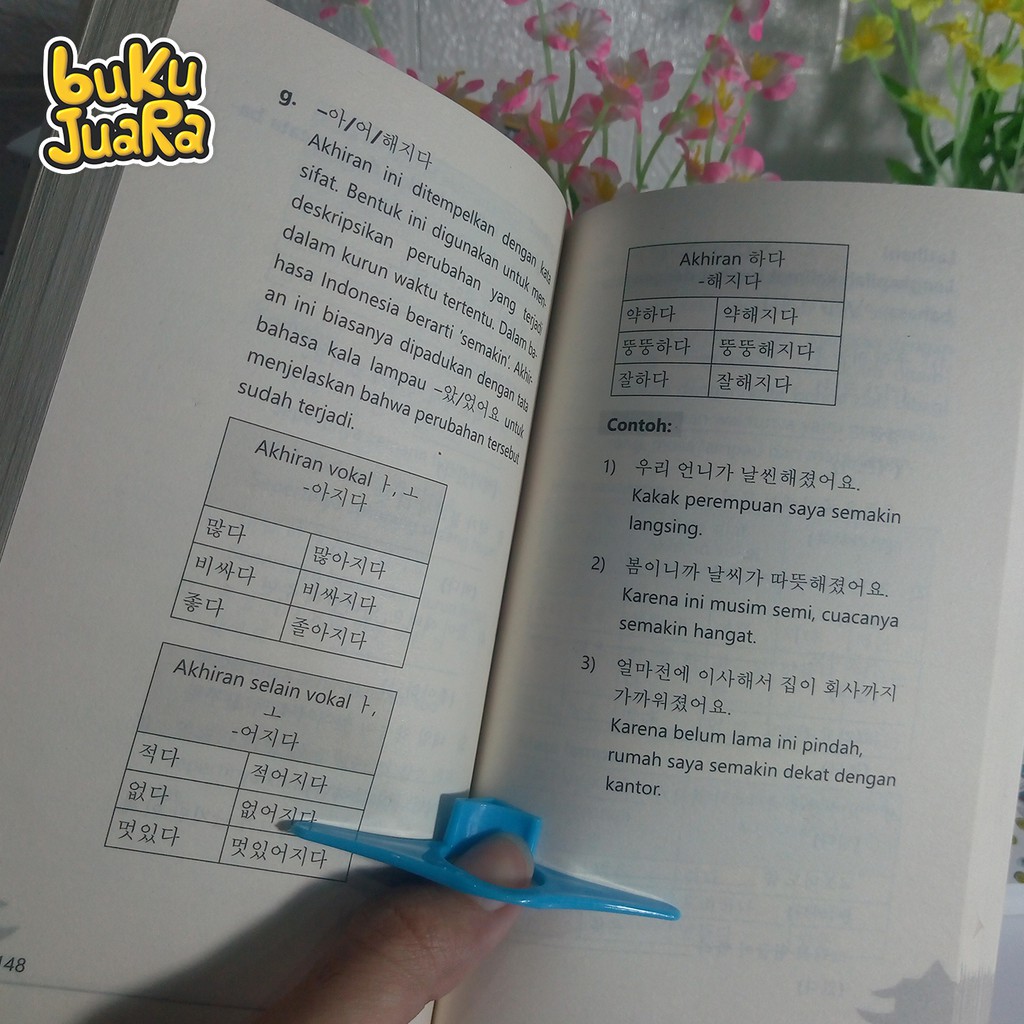 buku
Juara
g. –아/어/해지다
Akhiran ini ditempelkan dengan kata
sifat. Bentuk ini digunakan untuk men-
deskripsikan perubahan yang terjadi
dalam kurun waktu tertentu. Dalam ba-
hasa Indonesia berarti ‘semakin’. Akhir-
an ini biasanya dipadukan dengan tata
bahasa kala lampau –았/었어요 untuk
menjelaskan bahwa perubahan tersebut
sudah terjadi.
Akhiran vokal ㅏ, ㅗ
-아지다
많다 많아지다
비싸다 비싸지다
좋다 졸아지다
Akhiran selain vokal ㅏ,
ㅗ
-어지다
적다 적어지다
없다 없어지다
멋있다 멋있어지다
148
Akhiran 하다
-해지다
약하다 약해지다
뚱뚱하다 뚱뚱해지다
잘하다 잘해지다
Contoh:
1) 우리 언니가 날씬해졌어요.
Kakak perempuan saya semakin
langsing.
2) 봄이니까 날씨가 따뜻해졌어요.
Karena ini musim semi, cuacanya
semakin hangat.
3) 얼마전에 이사해서 집이 회사까지
가까워졌어요.
Karena belum lama ini pindah,
rumah saya semakin dekat dengan
kantor.